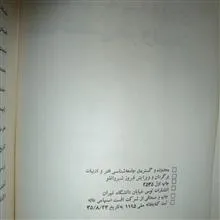 محدوده و گستره‌ی جامعه‌شناسی هنر و ادبیات
برگردان و ویرایش فیروز شیروانلو
چاپ اول ۲۵۳۵
انتشارات توس خیابان دانشگاه تهران
چاپ و صحافی از شرکت افست «سهامی عام»
ثبت کتابخانه ملی ۱۱۹۵ به تاریخ ۳۵/۸/۲۳